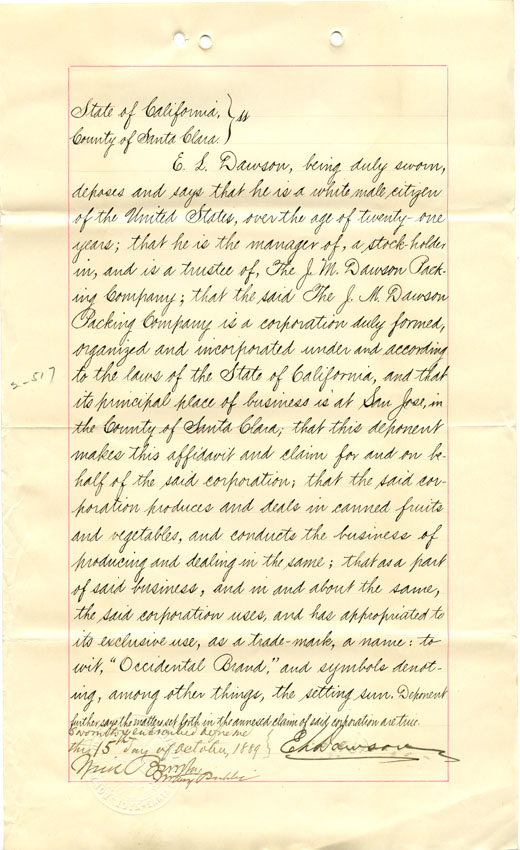 State of California, } ss
County of Santa Clara. }
E. L. Dawson, being duly sworn,
deposes and says that he is a white male citizen
of the United States, over the age of twenty-one
years; that he is the manager of, a stockholder
in, and is a trustee of, The J. M. Dawson Pack-
ing Company; that the said The J. M. Dawson
Packing Company is a corporation duly formed,
organized and incorporated under and according
to the laws of the State of California, and that
2-517
its principal place of business is at San Jose, in
the County of Santa Clara; that this deponent
makes this affidavit and claim for and on be-
half of the said corporation; that the said cor-
poration produces and deals in canned fruits
and vegetables, and conducts the business of
producing and dealing in the same; that as a part
of said business, and in and about the same,
the said corporation uses, and has appropriated to
its exclusive use, as a trade-mark, a name: to
wit, "Occidental Brand," and symbols denot-
ing, among other things, the setting sun. Deponent
further says the matters set forth in the annexed claim of said corporation are true.
Sworn to & subscribed before me
this 15th day of October, 1889 } E L Dawson
Notary Public